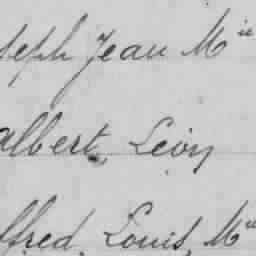 seph Jean Mie
albert, Léon
lfred, Louis, Mie